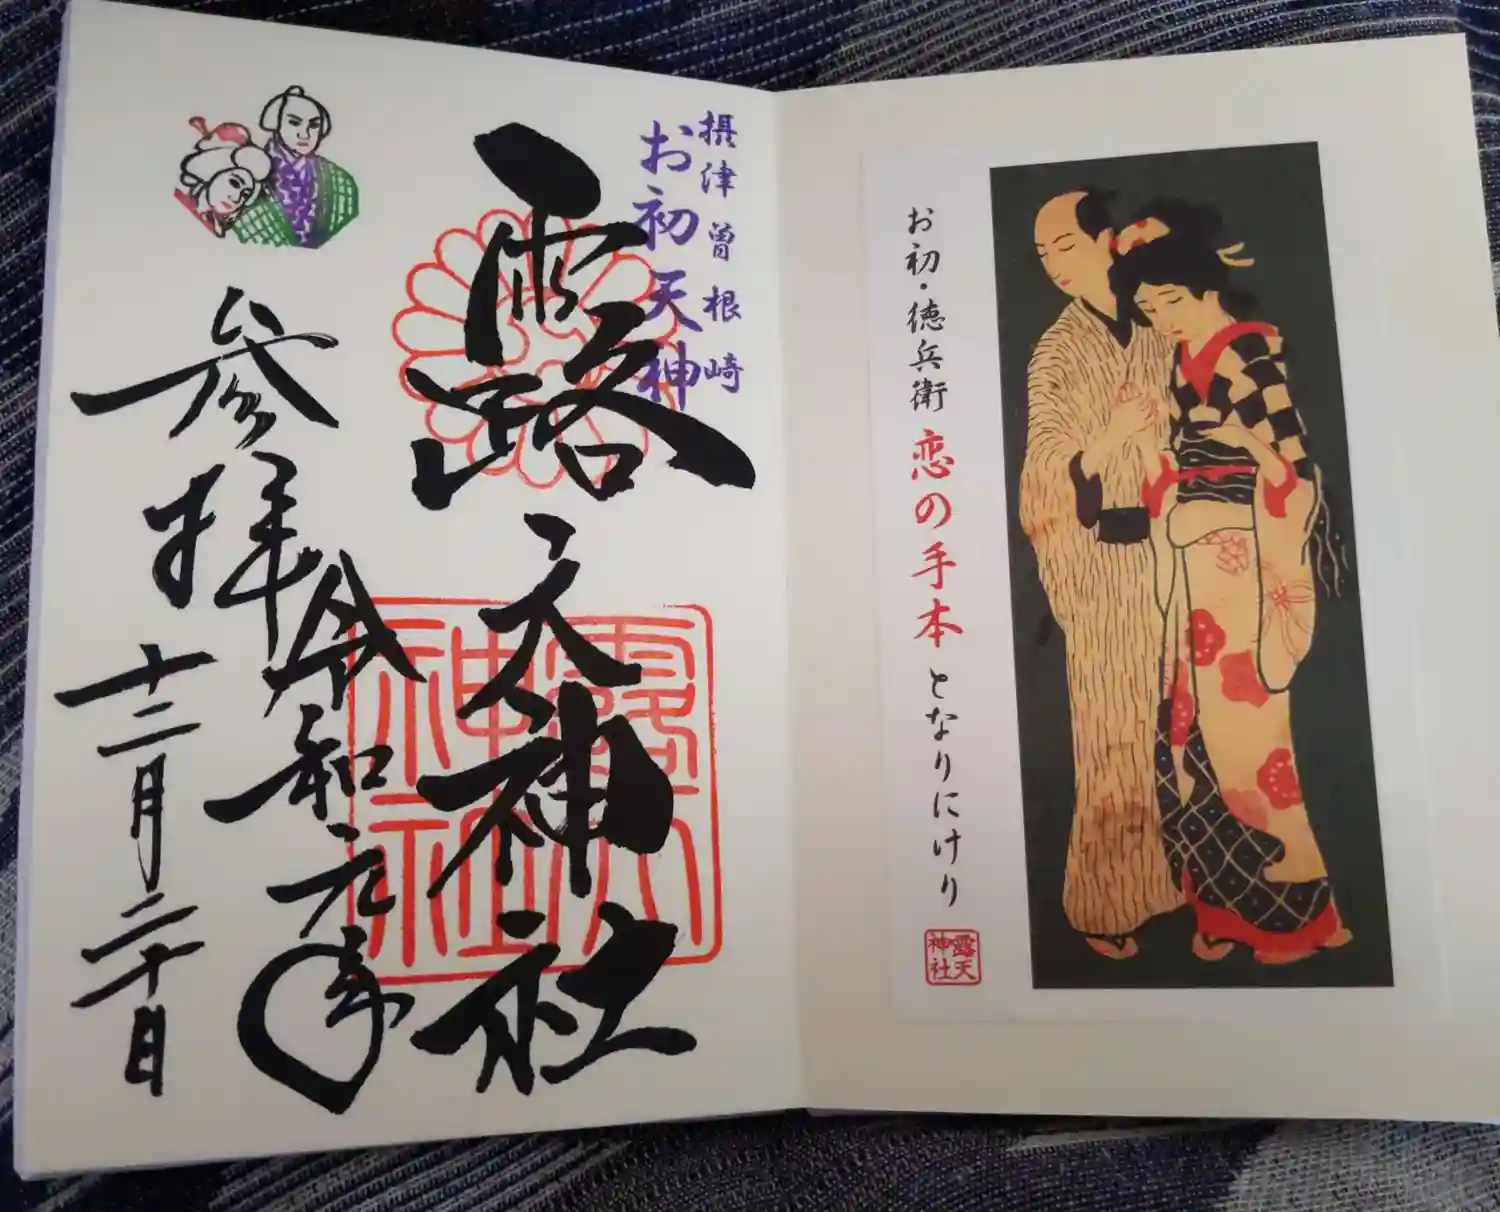 お初・徳兵衛 恋の手本 となりにけり
露天
神社
摂津 曽根崎
お初天神
露天神社
露天
神社
令和元年
参拝
十二月二十日